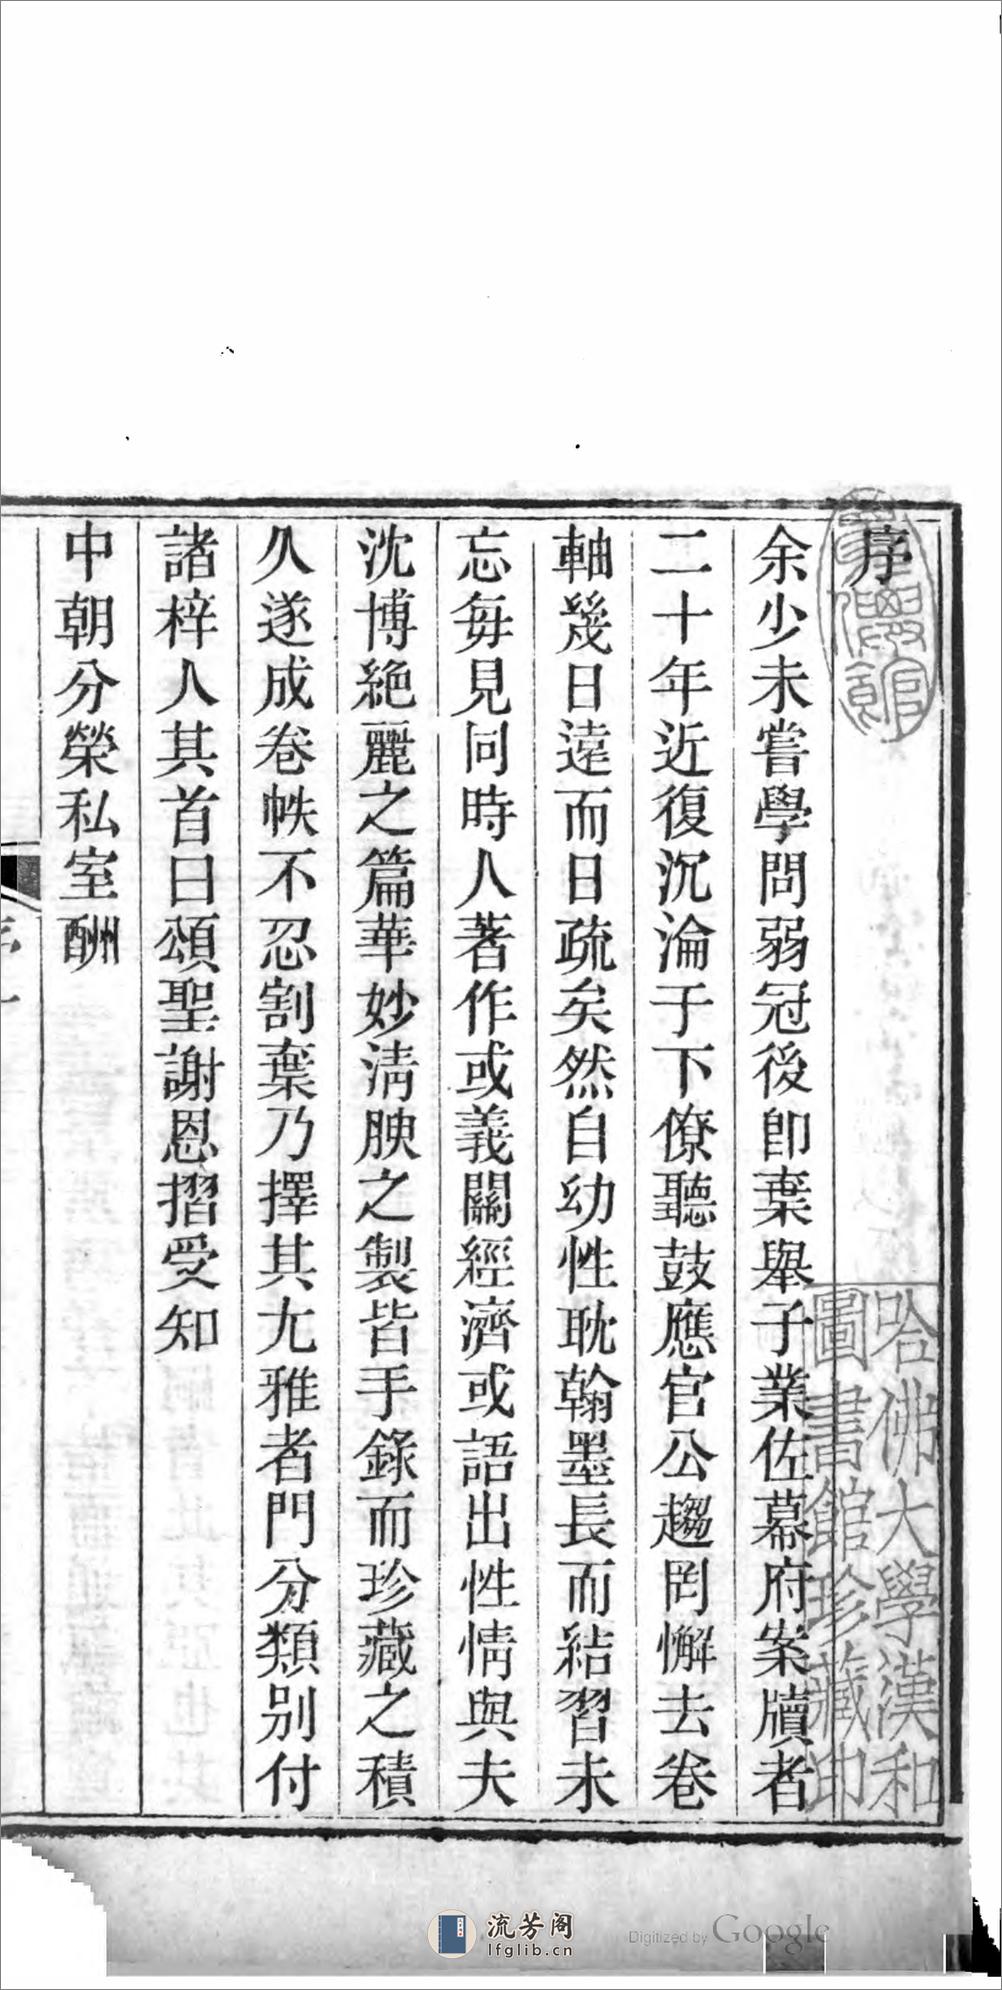 序
余少未嘗學問弱冠後卽棄舉子業佐幕府案牘者
二十年近復沉淪于下僚聽鼓應官公趨罔懈去卷
軸幾日遠而日疏矣然自幼性耽翰墨長而結習未
忘每見同時人著作或義關經濟或語出性情與夫
沈博絶麗之篇華妙淸腴之製皆手錄而珍藏之積
久遂成卷帙不忍割棄乃擇其尤雅者門分類別付
諸梓人其首曰頌聖謝恩摺受知
中朝分榮私室酬
哈佛大學漢和
圖書館珍藏印
流芳阁
lfglib.cn
Digitized by Google